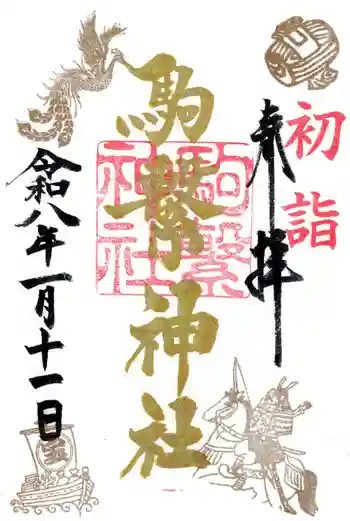 初詣
奉拝
駒繋神社
駒繋
神社
令和八年一月十一日
宝